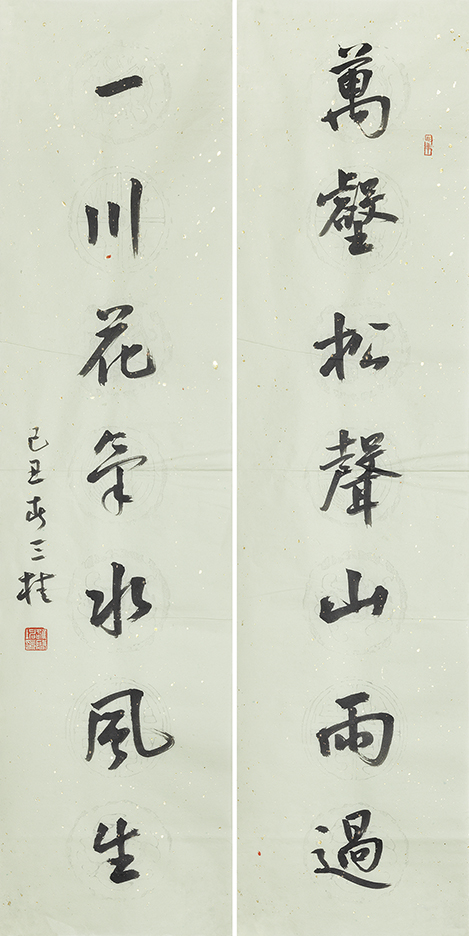 萬壑松聲山雨過
一川花氣水風生
己丑春三桂